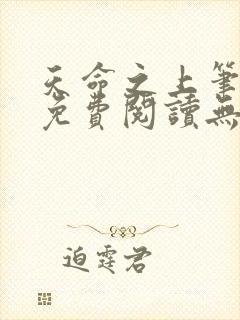 天命之上筆
免費閱讀無
迫霆君